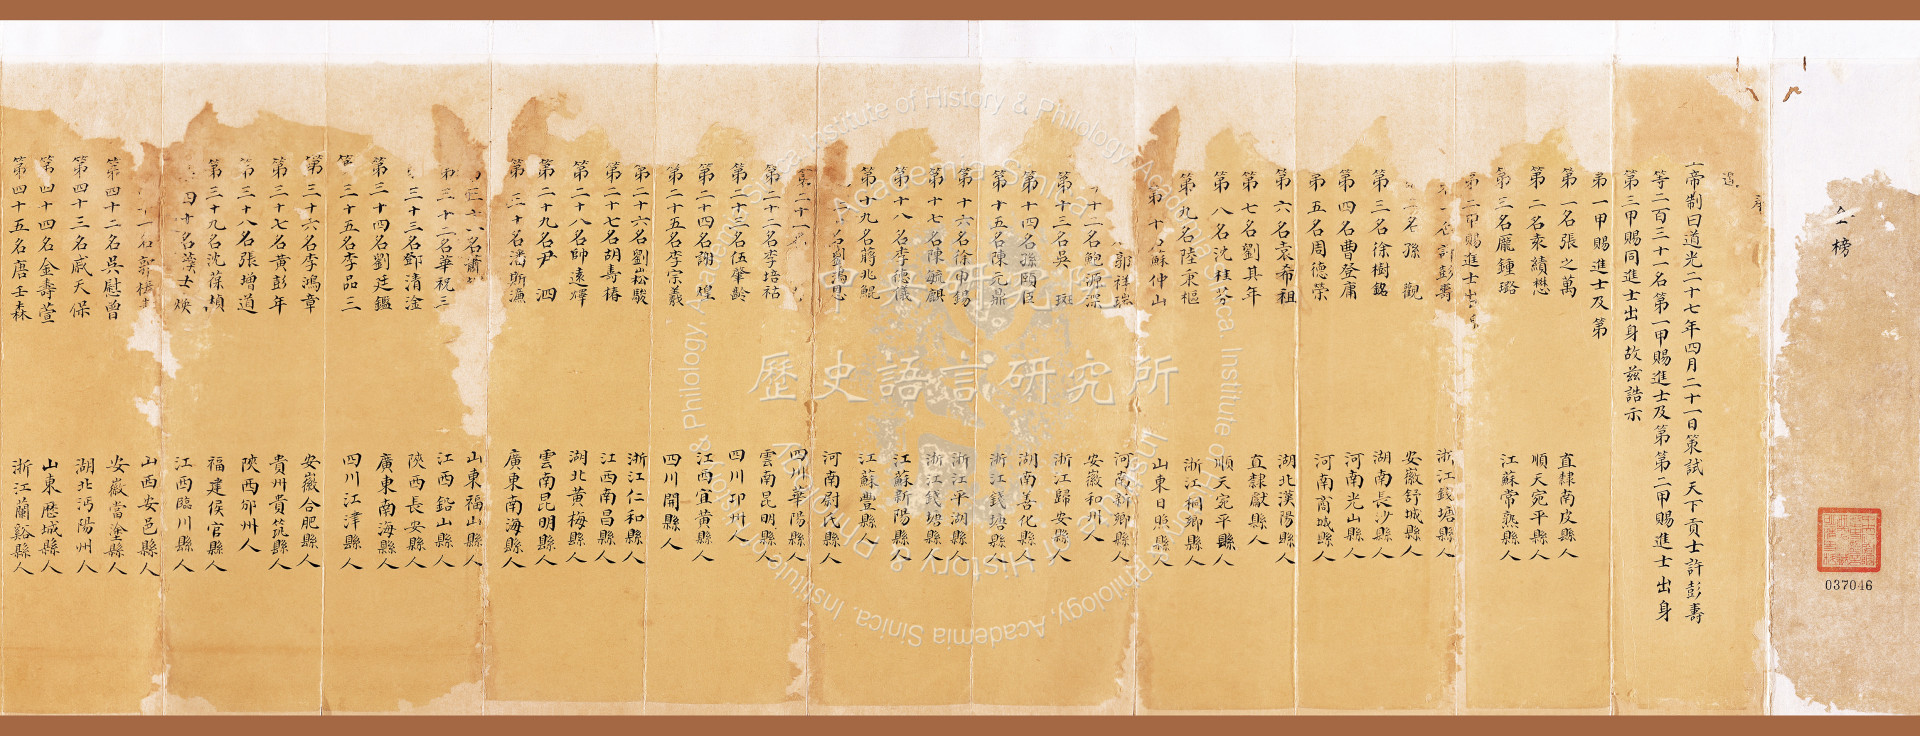 金榜
奉
制曰道光二十七年四月二十一日策試天下貢士許彭壽
等二百三十一名第一甲賜進士及第第二甲賜進士出身
第三甲賜同進士出身故茲誥示
第一甲賜進士及第
第一名張之萬 直隸南皮縣人
第二名袁績懋 順天宛平縣人
第三名龐鍾璐 江蘇常熟縣人
第二甲賜進士出身
第一名許彭壽 浙江錢塘縣人
第二名孫觀 安徽舒城縣人
第三名徐樹銘 湖南長沙縣人
第四名曹登庸 河南光山縣人
第五名周德榮 河南商城縣人
第六名袁希祖 湖北漢陽縣人
第七名劉其年 直隸獻縣人
第八名沈桂芬 順天宛平縣人
第九名陸秉樞 浙江桐鄉縣人
第十名蘇仲山 山東日照縣人
郭祥瑞 河南新鄉縣人
十二名鮑源深 安徽和州人
第十三名吳 斑 浙江歸安縣人
第十四名孫頤臣 湖南善化縣人
第十五名陳元鼎 浙江錢塘縣人
第十六名徐申錫 浙江平湖縣人
第十七名陳毓麒 浙江錢塘縣人
第十八名李德儀 江蘇新陽縣人
第十九名蔣兆鯤 江蘇豐縣人
名劉鴻恩 河南尉氏縣人
第二十一 四川華陽縣人
第二十二名李培祜 雲南昆明縣人
第二十三名伍肇齡 四川邛州人
第二十四名謝煌 江西宜黃縣人
第二十五名李宗羲 四川開縣人
第二十六名劉崧駿 浙江仁和縣人
第二十七名胡壽椿 江西南昌縣人
第二十八名帥遠燡 湖北黃梅縣人
第二十九名尹泗 雲南昆明縣人
第三十名潘斯濂 廣東南海縣人
名蕭 山東福山縣人
第三十二名華祝三 江西鉛山縣人
三十三名鄧清淦 陝西長安縣人
第三十四名劉廷鑑 廣東南海縣人
第三十五名李品三 四川江津縣人
第三十六名李鴻章 安徽合肥縣人
第三十七名黃彭年 貴州貴筑縣人
第三十八名張增道 陝西邠州人
第三十九名沈葆楨 福建侯官縣人
四十名黃士煥 江西臨川縣人
十一名郭 山西安邑縣人
第四十二名吳慰曾 安徽當塗縣人
第四十三名戚天保 湖北沔陽州人
第四十四名金壽萱 山東歷城縣人
第四十五名唐壬森 浙江蘭谿縣人
037046
歷史語言研究所
Institute of History & Philology, Academia Sinica